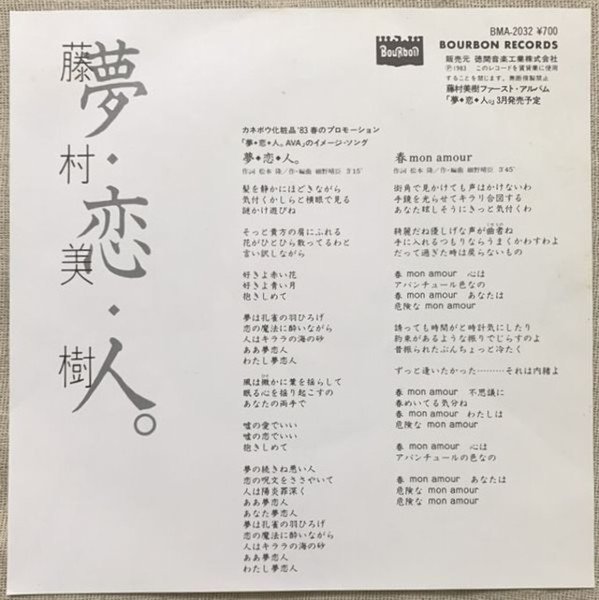 BMA-2032 ¥700
Bourbon
BOURBON RECORDS
販売元 徳間音楽工業株式会社
Ⓟ1983 このレコードを賃貸業に使用
することを禁じます。無断複製禁止
藤村美樹ファースト・アルバム
「夢•恋•人。」3月発売予定
夢・恋・人。
藤村美樹
カネボウ化粧品'83 春のプロモーション
「夢•恋•人。AVA」のイメージ・ソング
夢•恋•人。
作詞 松本 隆/作・編曲 細野晴臣 3'15"
髪を静かにほどきながら
気付くかしらと横眼で見る
謎かけ遊びね
そっと貴方の肩にふれる
花がひとひら散ってるわと
言い訳しながら
好きよ赤い花
好きよ青い月
抱きしめて
夢は孔雀の羽ひろげ
恋の魔法に酔いながら
人はキララの海の砂
ああ夢恋人
わたし夢恋人
風は微かに葉を揺らして
眠る心を揺り起こすの
あなたの両手で
嘘の愛でいい
嘘の恋でいい
抱きしめて
夢の続きね悪い人
恋の呪文をささやいて
人は陽炎罪深く
ああ夢恋人
あなた夢恋人
夢は孔雀の羽ひろげ
恋の魔法に酔いながら
人はキララの海の砂
ああ夢恋人
わたし夢恋人
春 mon amour
作詞 松本 隆/作・編曲 細野晴臣 3'45"
街角で見かけても声はかけないわ
手鏡を光らせてキラリ合図する
あなた眩しそうにきっと気付くわ
綺麗だね優しげな声が曲者ね
手に入れるつもりならうまくかわすわよ
だって過ぎた時は戻らないもの
春 mon amour 心は
アバンチュール色なの
春 mon amour あなたは
危険な mon amour
誘っても時間がと時計気にしたり
約束があるような振りでじらすのよ
昔振られたぶんちょっと冷たく
ずっと逢いたかった………それは内緒よ
春 mon amour 不思議に
春めいてる気分ね
春 mon amour わたしは
危険な mon amour
春 mon amour 心は
アバンチュール色なの
春 mon amour あなたは
危険な mon amour
危険な mon amour